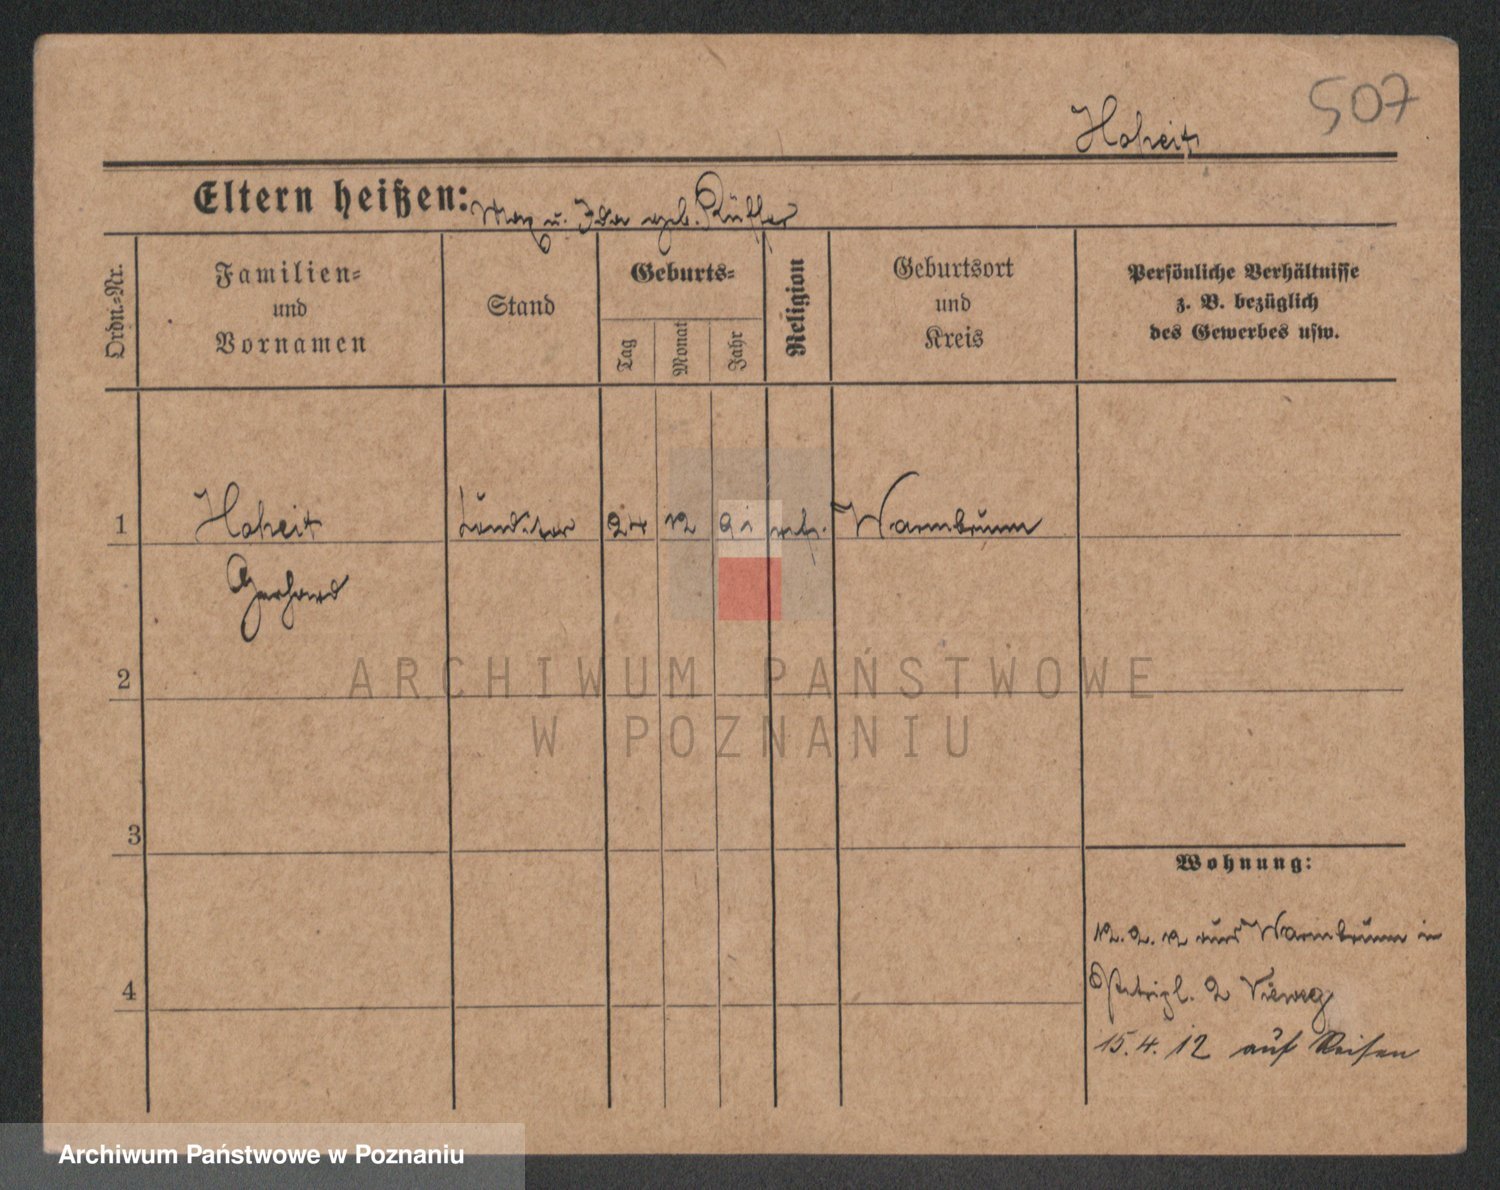 507
Hoheit
Eltern heißen: Max u. Ida geb. Rüffer
Ordn.-Nr.
Familien-
und
Vornamen
Stand
Geburts-
Tag
Monat
Jahr
Religion
Geburtsort
und
Kreis
Persönliche Verhältnisse
z. B. bezüglich
des Gewerbes usw.
1 Hoheit Konditor 24 12 91 Warmbrunn
Gerhard
2
ARCHIWUM PAŃSTWOWE
W POZNANIU
3
Wohnung:
12. 2. 12 aus Warmbrunn in
4
Petripl. 2 Vieweg
15. 4. 12 auf Reisen
Archiwum Państwowe w Poznaniu